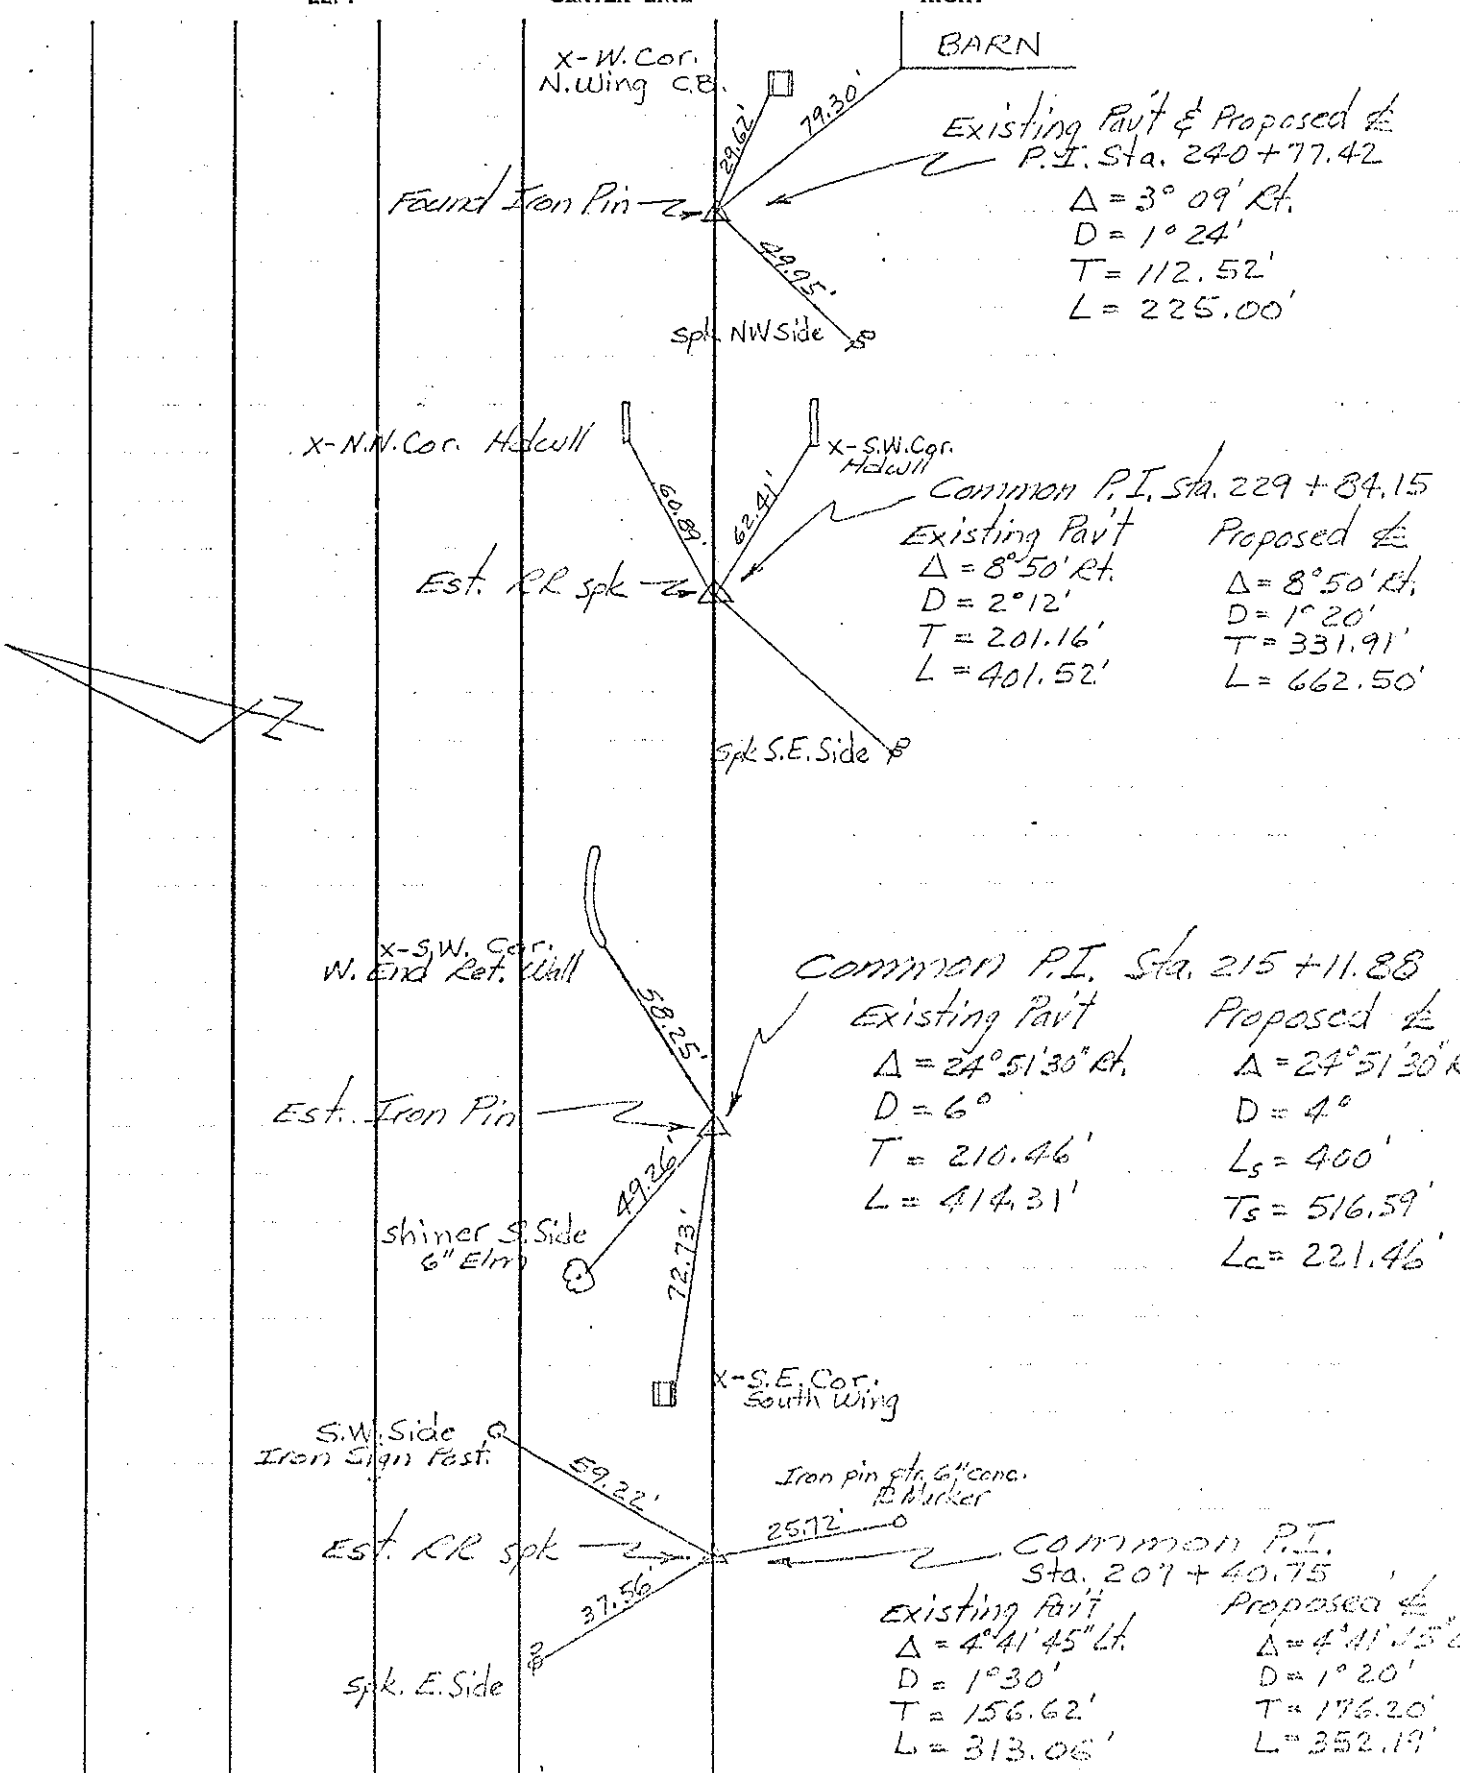 BARN
X-W. Cor.
N. Wing C.B.
29.62'
79.30'
Existing Pav't & Proposed ℄
P.I. Sta. 240+77.42
Δ = 3° 09' Rt.
D = 1° 24'
T = 112.52'
L = 225.00'
Found Iron Pin
49.95'
spk. NW Side
X-N.N. Cor. Hdwll
X-S.W. Cor.
Hdwll
60.89'
62.41'
Common P.I. Sta. 229+84.15
Existing Pav't
Δ = 8°50' Rt.
D = 2°12'
T = 201.16'
L = 401.52'
Proposed ℄
Δ = 8°50' Rt.
D = 1° 20'
T = 331.91'
L = 662.50'
Est. RR spk
spk S.E. Side
X-S.W. Cor.
W. End Ret. Wall
58.25'
Common P.I. Sta. 215+11.88
Existing Pav't
Δ = 24°51'30" Rt.
D = 6°
T = 210.46'
L = 414.31'
Proposed ℄
Δ = 24°51'30" R
D = 4°
Ls = 400'
Ts = 516.59'
Lc = 221.46'
Est. Iron Pin
49.26'
72.73'
shiner S. Side
6" Elm
X-S.E. Cor.
South Wing
S.W. Side
Iron Sign Post.
59.22'
Iron pin ctr. 6" conc.
Marker
25.72'
Est. RR spk
37.56'
spk. E. Side
Common P.I.
Sta. 207+40.75
Existing Pav't
Δ = 4°41'45" Lt.
D = 1°30'
T = 156.62'
L = 313.06'
Proposed ℄
Δ = 4°41'45" L
D = 1°20'
T = 176.20'
L = 352.19'